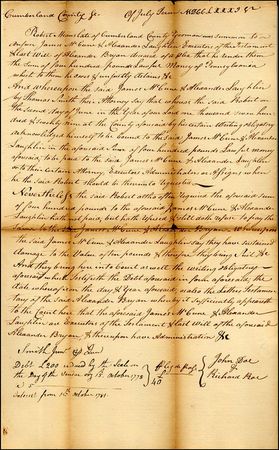 Cumberland County Ss. Of July Term MDCCLXXXI
Robert Mc of Cumberland County Yeoman was summoned to
answer James McCune & Alexander Laughlin Executors of the Testament
& Last Will of Alexander Bryan of a Plea that he render them
the sum of four hundred pounds Lawful Money of Pennsylvania
which to them he owes & unjustly detains &c
And whereupon the said James McCune & Alexander Laughlin
by Thomas Smith their Attorney say that whereas the said Robert on
the Second day of June in the Year of our Lord one thousand seven hun-
dred & Seventy at the County aforesaid by his certain writing obligatory
acknowledged himself to be bound to the said James McCune & Alexander
Laughlin in the aforesaid sum of four hundred pounds Lawful money
aforesaid to be paid to the said James McCune & Alexander Laughlin
or to their certain Attorney Executors Administrators or Assigns when
he the said Robert should be thereunto requested
Nevertheless the said Robert altho often required the aforesaid sum
of four hundred pounds to the aforesaid James McCune & Alexander
Laughlin hath not paid, but hath refused & still doth refuse to pay the
same to the said James McCune & Alexander Whereupon
the said James McCune & Alexander Laughlin say they have sustained
damage to the Value of ten pounds & thereupon they bring Suit &c
And they bring here into Court as well the writing obligatory
aforesaid which testifieth the Debt aforesaid in form aforesaid, the
date whereof is the day & Year aforesaid, as also the Letters Testamen-
tary of the said Alexander Bryan whereby it sufficiently appeareth
to the Court here that the aforesaid James McCune & Alexander
Laughlin are Executors of the Testament & Last Will of the aforesaid
Alexander Bryan, & thereupon have Administration &c
Smith
Debt £200 October 1778
Pledges
John Doe
&
Richard Roe
Interest from 1st October 1781